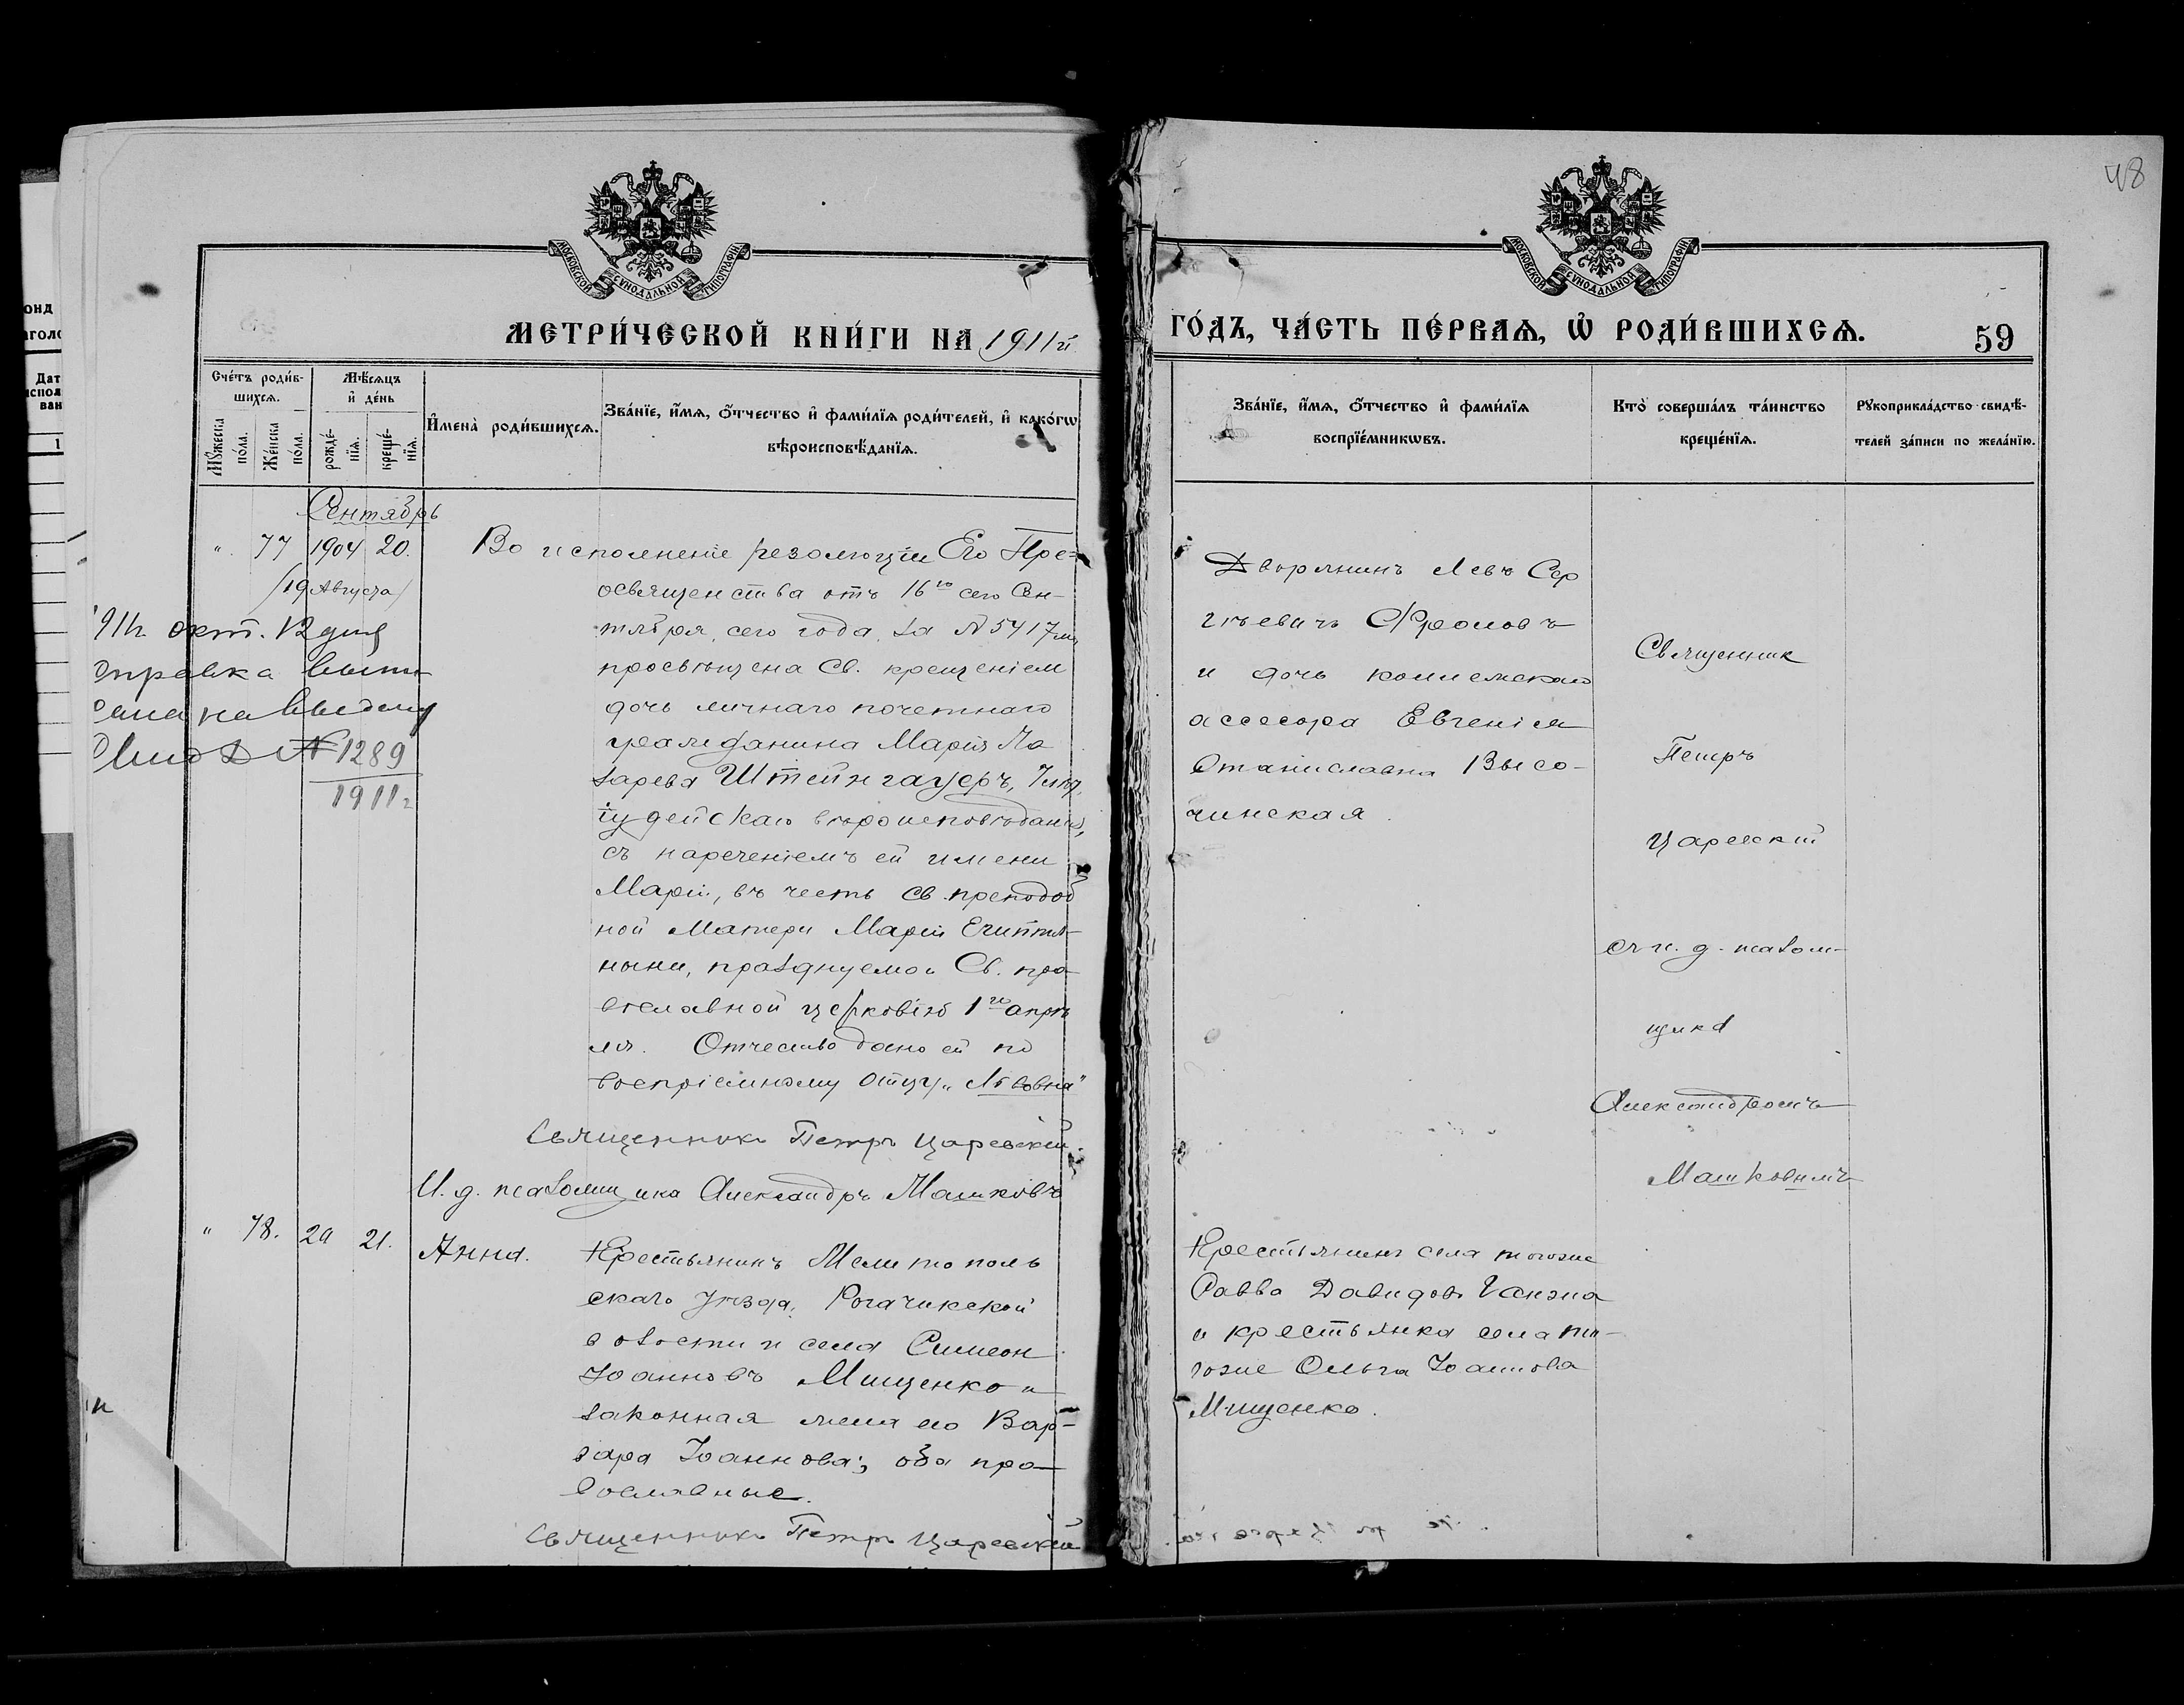 48
МОСКОВСКОЙ СѴНОДАЛЬНОЙ ТИПОГРАФІИ
МОСКОВСКОЙ СѴНОДАЛЬНОЙ ТИПОГРАФІИ
МЕТРИ́ЧЕСКОЙ КНИ́ГИ НА 1911й
ГО́ДЪ, ЧА́СТЬ ПЕ́РВАѦ, Ѡ҆ РОДИ́ВШИХСѦ.
59
Сче́тъ роди́в-
шихсѧ.
Мꙋ́жеска по́ла.
Же́нска по́ла.
Мѣ́сѧцъ
и҆ де́нь
рожде́-
нїѧ.
креще́-
нїѧ.
И҆мена̀ роди́вшихсѧ.
Зва́нїе, и҆́мѧ, ѻ҆́тчество и҆ фами́лїѧ роди́телей, и҆ како́гѡ
вѣроисповѣ́данїѧ.
Зва́нїе, и҆́мѧ, ѻ҆́тчество и҆ фами́лїѧ
воспрїе́мникѡвъ.
Кто̀ соверша́лъ та́инство
креще́нїѧ.
Рꙋкоприкла́дство свидѣ́-
телей за́писи по жела́нїю.
Сентябрь
" 77 1904 20.
/19 Августа/
911г. окт. 12 дня
справка выпи-
сана на выдачу
№ 1289
1911г
Во исполненіе резолюціи Его Пре=
освященства отъ 16го сего Сен-
тября, сего года, за № 5417мъ
просвѣщена Св. крещеніем
дочь личнаго почетнаго
гражданина Марія Ла
зарева Штейнгауеръ, 7 лѣт,
іудейскаго вѣроисповѣданія,
съ нареченіемъ ей имени
Марія, въ честь св. преподоб
ной Матери Маріи Египтя-
ныни, празднуемой Св. пра
вославной церковію 1го апрѣ
ля. Отчество дано ей по
воспріемному отцу „Львовна"
Священникъ Петръ Царевскій.
И. д. псаломщика Александръ Машковъ
Дворянинъ Левъ Сер
гѣевичъ Фроловъ
и дочь коллежскаго
ассесора Евгенія
Станиславна Высо-
чинская.
Священник
Петръ
Царевскій
съ и. д. псалом-
щика
Александромъ
Машковымъ
" 78. 20 21. Анна.
Крестьянинъ Мелитополь
скаго уѣзда, Рогачикской
волости и села Симеон
Іоанновъ Мищенко и
законная жена его Вар-
вара Іоаннова; оба пра
вославные.
Священникъ Петръ Царевскій
Крестьянинъ села тогоже
Савва Давидовъ Ганжа
и крестьянка села то-
гоже Ольга Іоаннова
Мищенко.